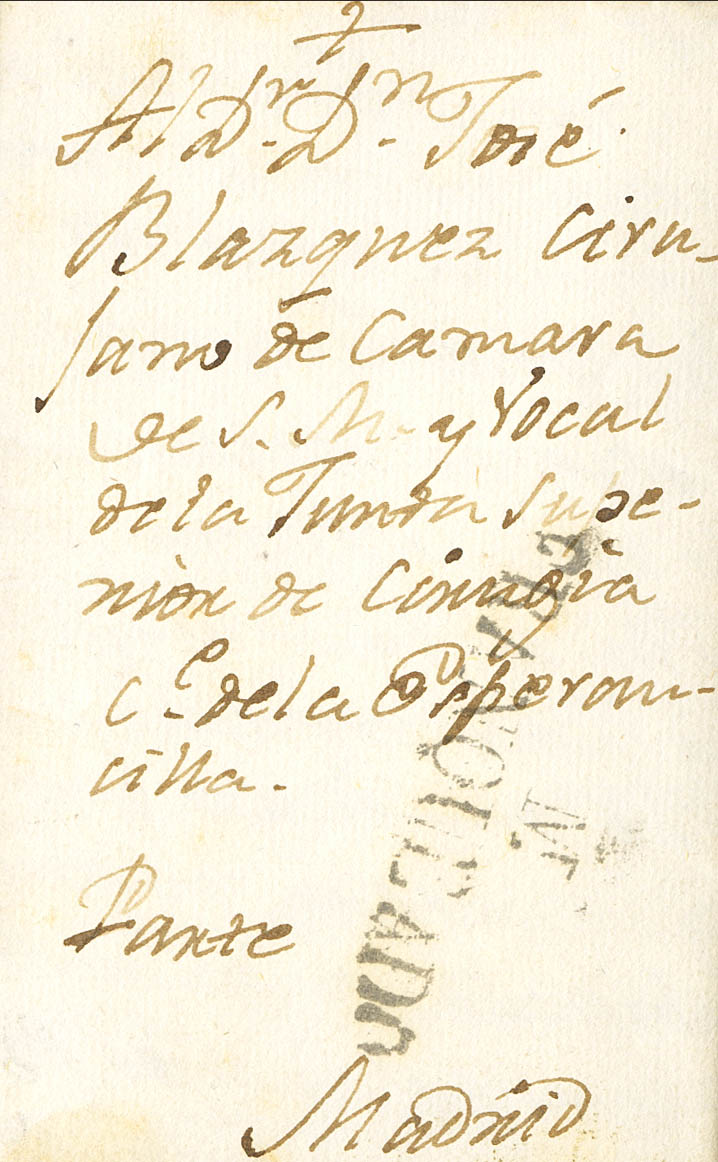 †
Al Dr. Dn. José
Blazquez Ciru-
jano de Camara
de S. M. y Vocal
de la Junta Supe-
rior de Cirugia
Ce. de la Esperan-
cilla.
Parte
Madrid